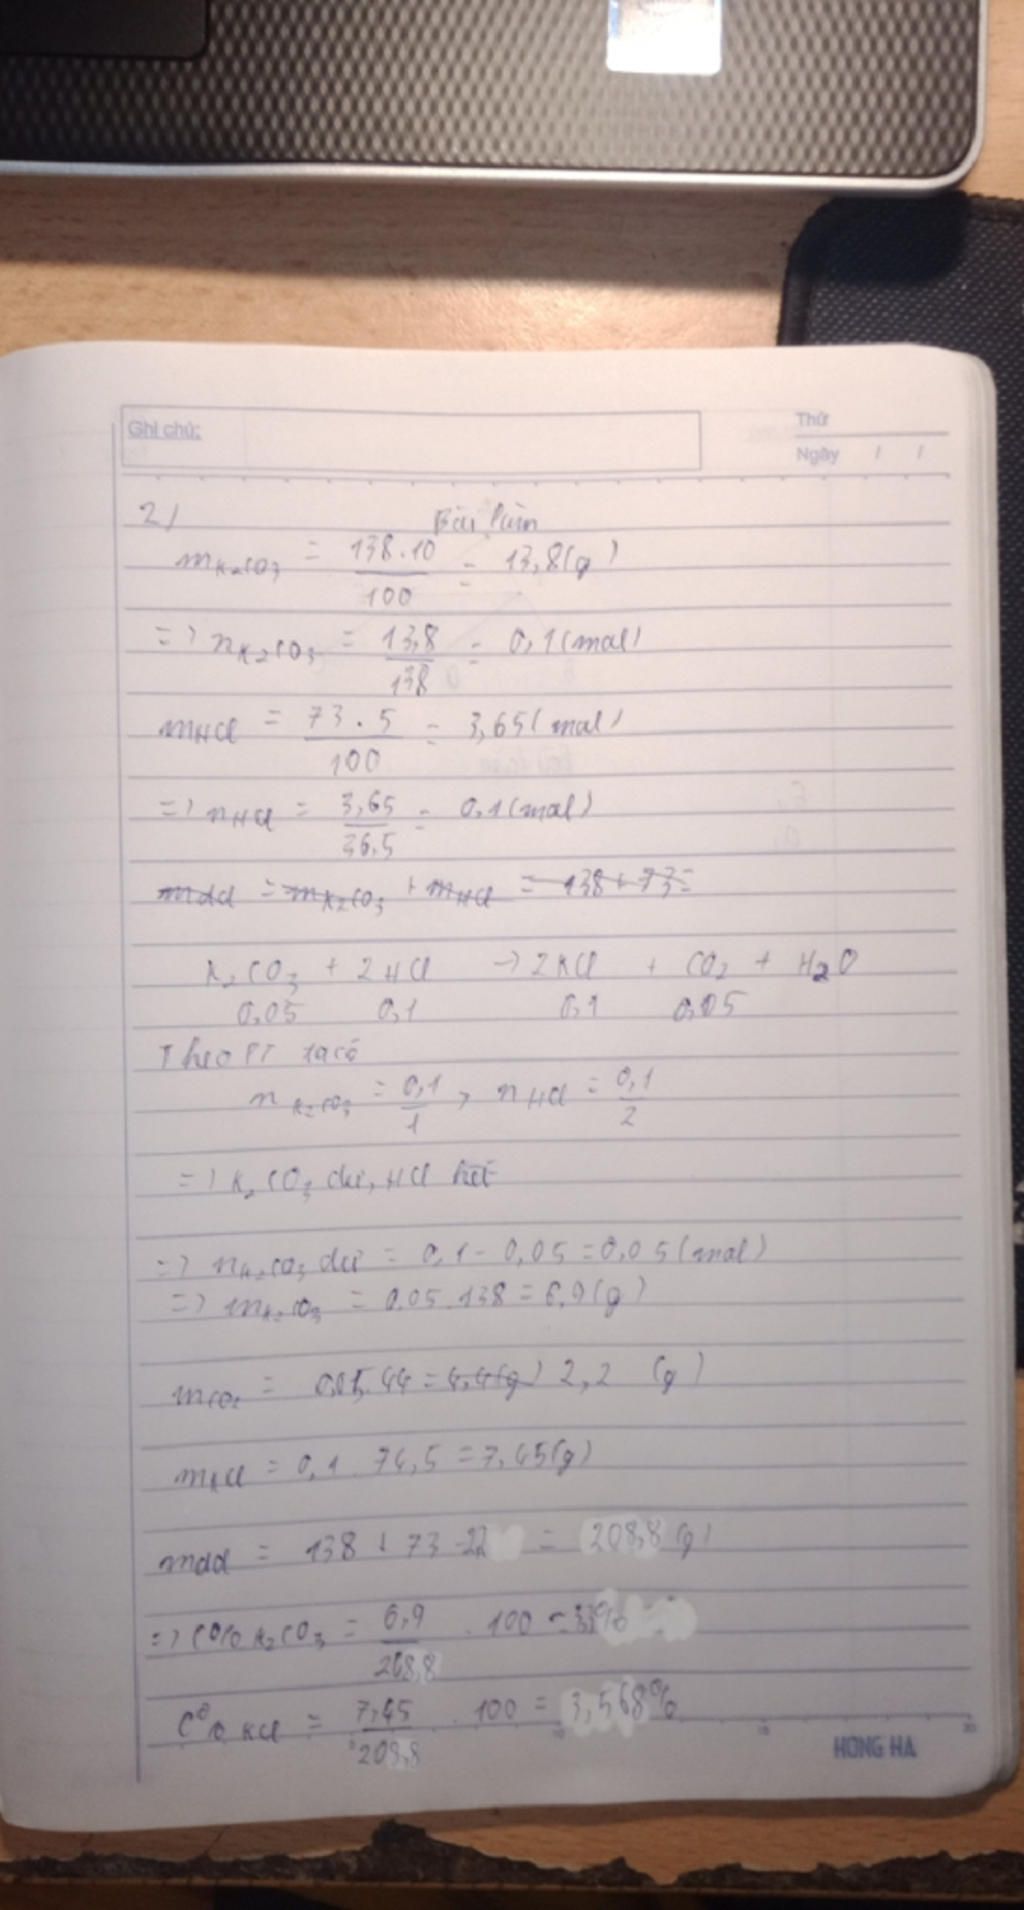 Ghi chú:
Thứ
Ngày / /
2/ Bài làm
mK2CO3 = 138.10/100 = 13,8(g)
=> nK2CO3 = 13,8/138 = 0,1(mol)
mHCl = 73.5/100 = 3,65(mol)
=> nHCl = 3,65/36,5 = 0,1(mol)
mdd = mK2CO3 + mHCl = 138+73=
K2CO3 + 2HCl -> 2KCl + CO2 + H2O
0,05 0,1 0,1 0,05
Theo PT ta có
nK2CO3 = 0,1/1 > nHCl = 0,1/2
=> K2CO3 dư, HCl hết
=> nK2CO3 dư = 0,1 - 0,05 = 0,05(mol)
=> mK2CO3 = 0,05.138 = 6,9(g)
mCO2 = 0,05.44 = 4,4(g) 2,2 (g)
mKCl = 0,1.74,5 = 7,45(g)
mdd = 138 + 73 - 2,2 = 208,8(g)
=> C%K2CO3 = 6,9/208,8 . 100 = %
C% KCl = 7,45/208,8 . 100 = 3,568%
HONG HA